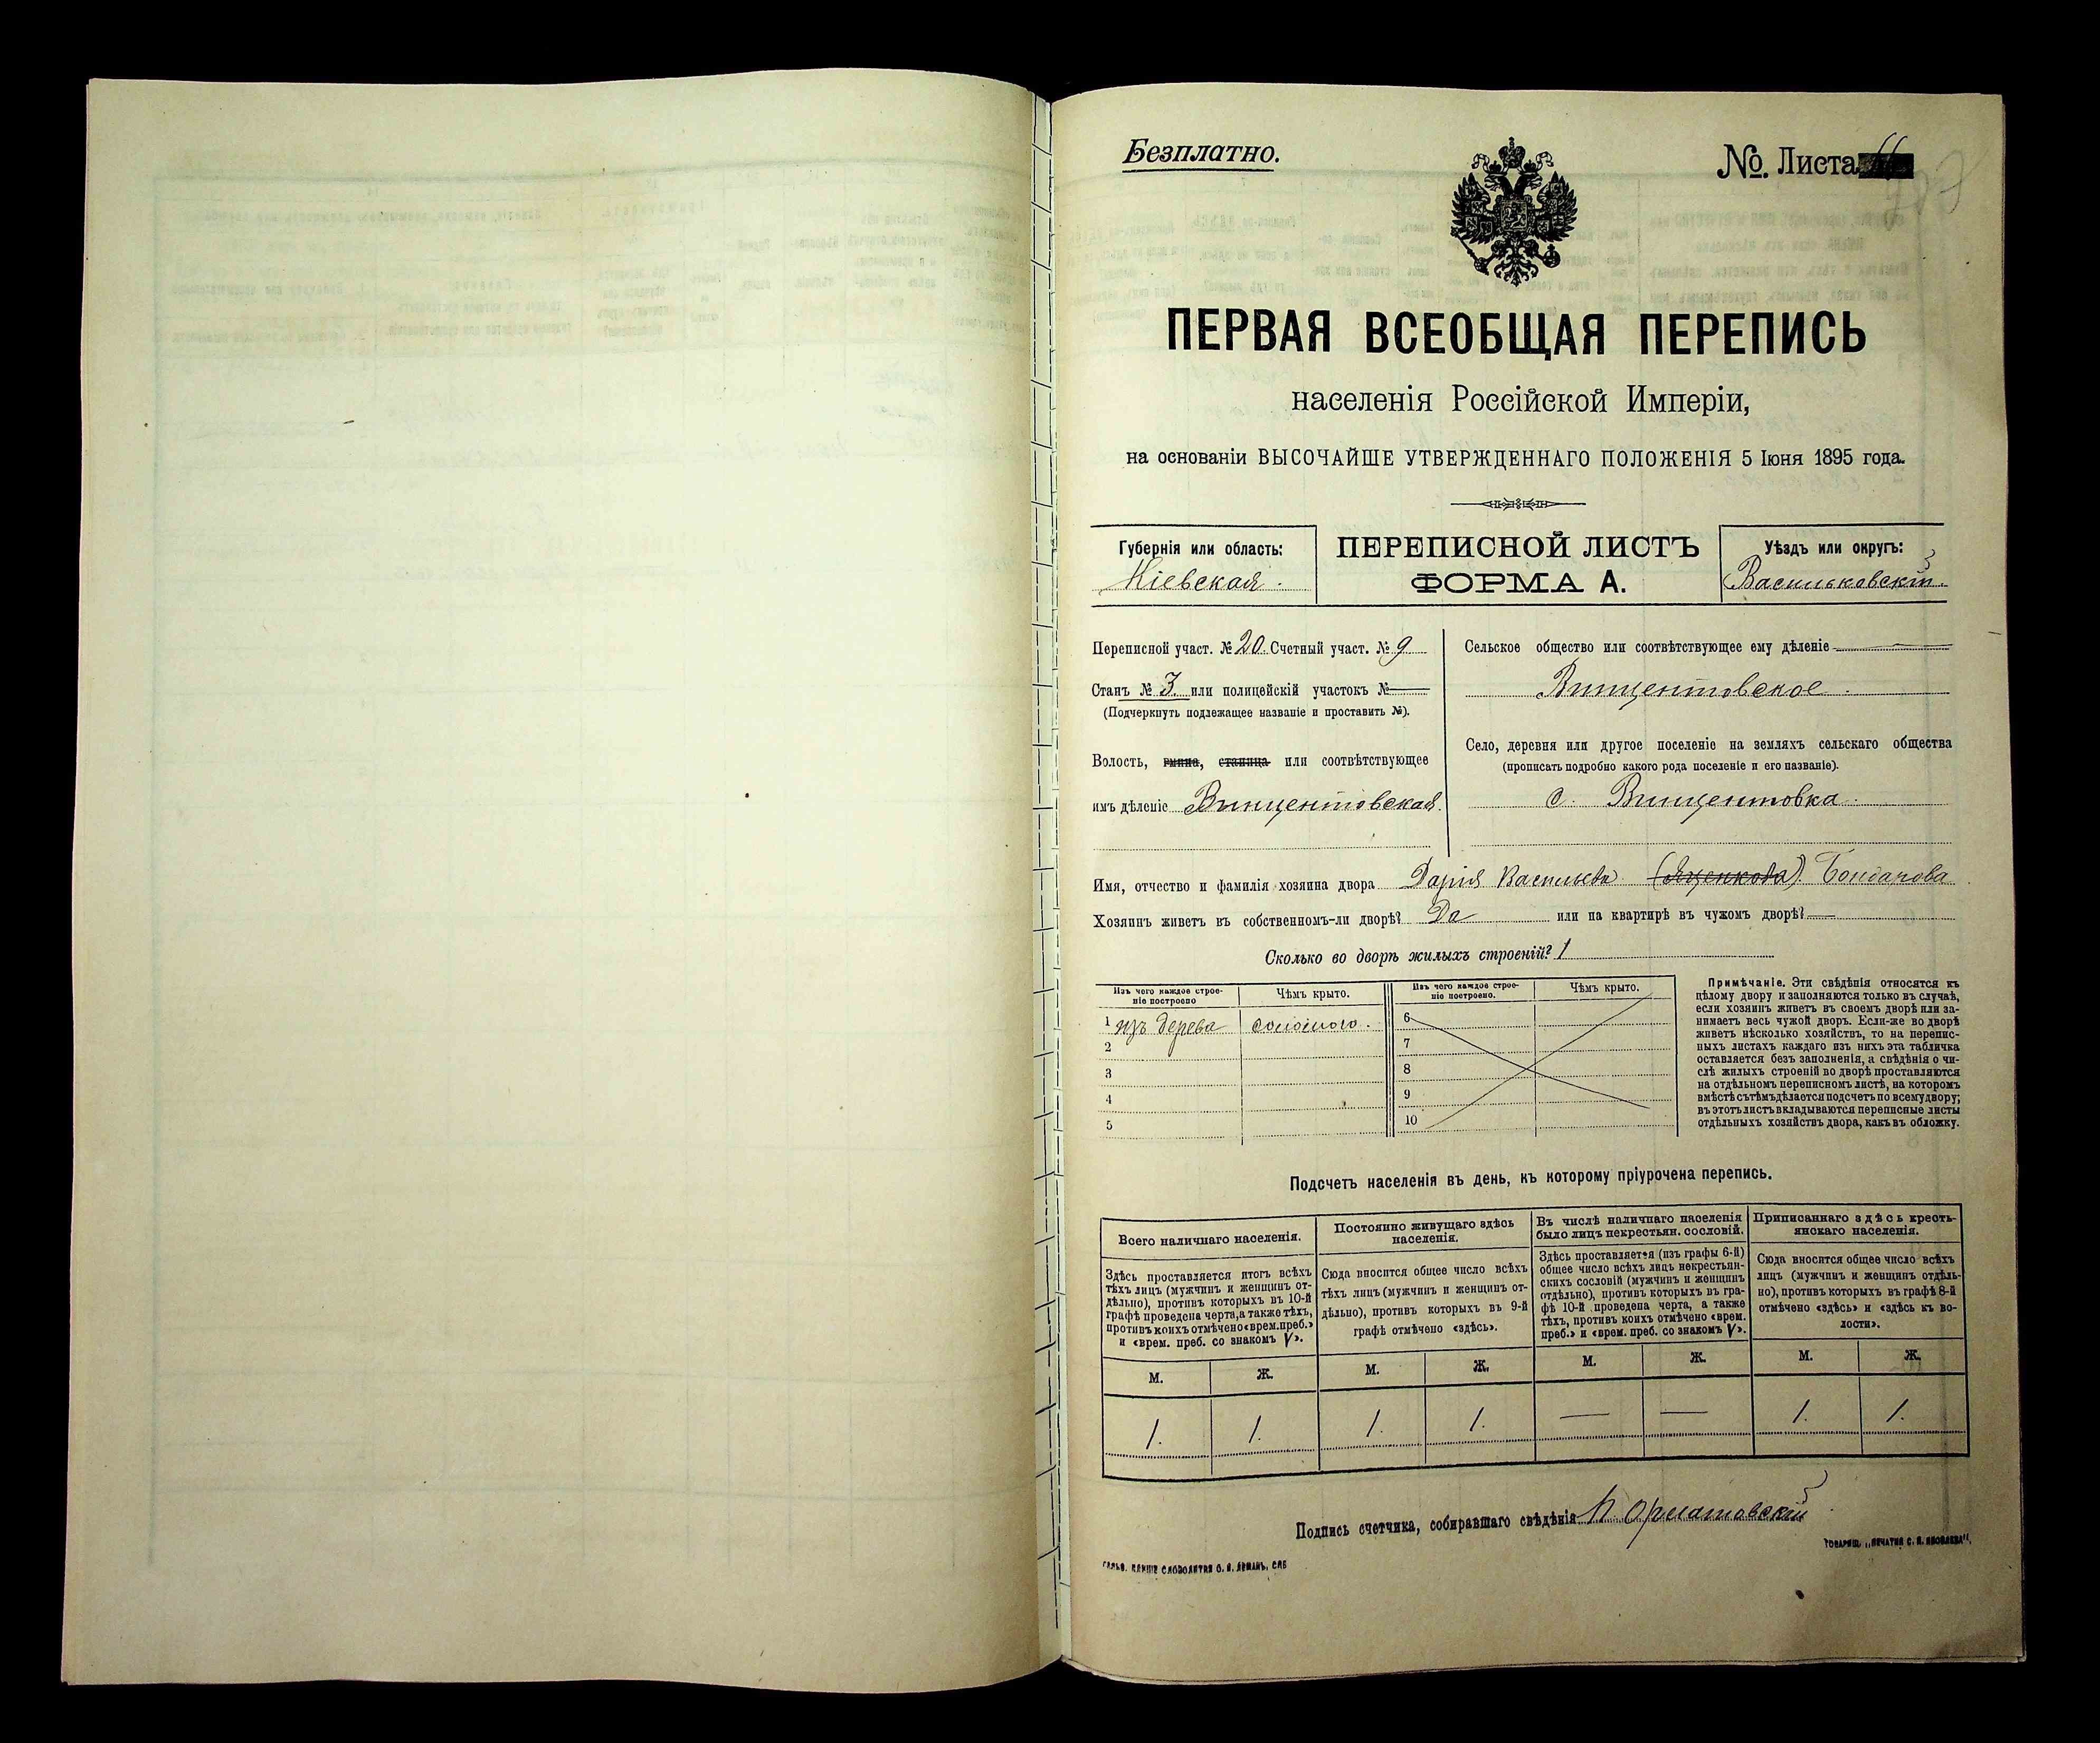 Безплатно.
№. Листа
ПЕРВАЯ ВСЕОБЩАЯ ПЕРЕПИСЬ
населенія Россійской Имперіи,
на основаніи ВЫСОЧАЙШЕ УТВЕРЖДЕННАГО ПОЛОЖЕНІЯ 5 Іюня 1895 года.
Губернія или область:
Кіевская.
ПЕРЕПИСНОЙ ЛИСТЪ
ФОРМА А.
Уѣздъ или округъ:
Васильковскій.
Переписной участ. № 20. Счетный участ. № 9
Станъ № 3. или полицейскій участокъ №
(Подчеркнуть подлежащее названіе и проставить №).
Волость, гмина, станица или соотвѣтствующее
имъ дѣленіе Винцентовская.
Сельское общество или соотвѣтствующее ему дѣленіе
Винцентовское.
Село, деревня или другое поселеніе на земляхъ сельскаго общества
(прописать подробно какого рода поселеніе и его названіе).
с. Винцентовка.
Имя, отчество и фамилія хозяина двора Дарія Васильева (Яценкова) Бондарова
Хозяинъ живетъ въ собственномъ-ли дворѣ? Да или на квартирѣ въ чужомъ дворѣ?
Сколько во дворѣ жилыхъ строеній? 1
Изъ чего каждое строе-
ніе построено
Чѣмъ крыто.
Изъ чего каждое строе-
ніе построено.
Чѣмъ крыто.
1 изъ дерева соломою.
2
3
4
5
6
7
8
9
10
Примѣчаніе. Эти свѣдѣнія относятся къ
цѣлому двору и заполняются только въ случаѣ,
если хозяинъ живетъ въ своемъ дворѣ или за-
нимаетъ весь чужой дворъ. Если-же во дворѣ
живетъ нѣсколько хозяйствъ, то на перепис-
ныхъ листахъ каждаго изъ нихъ эта табличка
оставляется безъ заполненія, а свѣдѣнія о чи-
слѣ жилыхъ строеній во дворѣ проставляются
на отдѣльномъ переписномъ листѣ, на которомъ
вмѣстѣ съ тѣмъ дѣлается подсчетъ по всему двору;
въ этотъ листъ вкладываются переписные листы
отдѣльныхъ хозяйствъ двора, какъ въ обложку.
Подсчетъ населенія въ день, къ которому пріурочена перепись.
Всего наличнаго населенія.
Постоянно живущаго здѣсь
населенія.
Въ числѣ наличнаго населенія
было лицъ некрестьян. сословій.
Приписаннаго здѣсь кресть-
янскаго населенія.
Здѣсь проставляется итогъ всѣхъ
тѣхъ лицъ (мужчинъ и женщинъ от-
дѣльно), противъ которыхъ въ 10-й
графѣ проведена черта, а также тѣхъ,
противъ коихъ отмѣчено «врем. преб.»
и «врем. преб. со знакомъ V».
Сюда вносится общее число всѣхъ
тѣхъ лицъ (мужчинъ и женщинъ от-
дѣльно), противъ которыхъ въ 9-й
графѣ отмѣчено «здѣсь».
Здѣсь проставляется (изъ графы 6-й)
общее число всѣхъ лицъ некрестьян-
скихъ сословій (мужчинъ и женщинъ
отдѣльно), противъ которыхъ въ гра-
фѣ 10-й проведена черта, а также
тѣхъ, противъ коихъ отмѣчено «врем.
преб.» и «врем. преб. со знакомъ V».
Сюда вносится общее число всѣхъ
лицъ (мужчинъ и женщинъ отдѣль-
но), противъ которыхъ въ графѣ 8-й
отмѣчено «здѣсь» и «здѣсь къ во-
лости».
М. Ж. М. Ж. М. Ж. М. Ж.
1. 1. 1. 1. — — 1. 1.
Подпись счетчика, собиравшаго свѣдѣнія